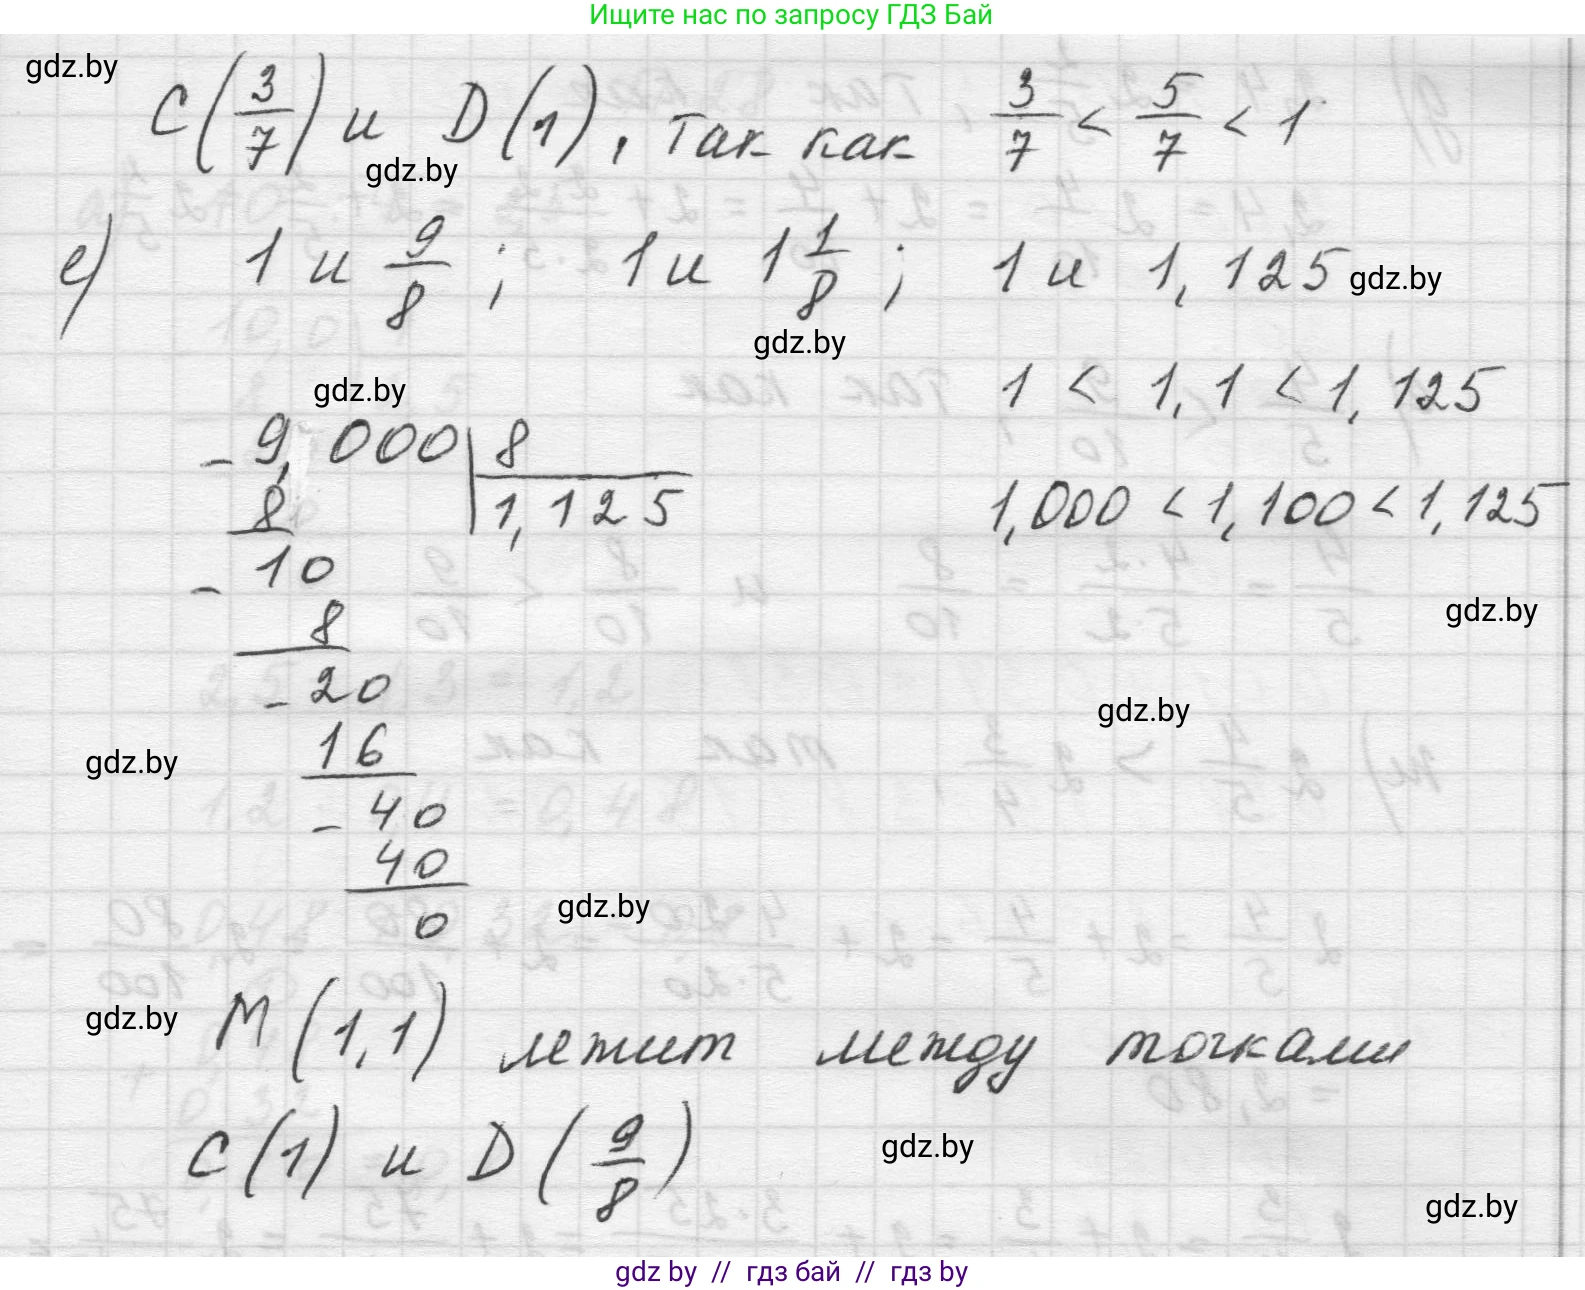 Ищите нас по запросу ГДЗ Бай
gdz.by
C(3/7) и D(1), так как 3/7 < 5/7 < 1
gdz.by
е) 1 и 9/8; 1 и 1 1/8; 1 и 1,125
gdz.by
gdz.by
gdz.by
1 < 1,1 < 1,125
- 9,000 | 8
8 | 1,125
1,000 < 1,100 < 1,125
- 10
8
gdz.by
- 20
gdz.by
16
gdz.by
- 40
40
gdz.by
0
gdz.by
M(1,1) лежит между точками
C(1) и D(9/8)
gdz.by
gdz.by
gdz by // гдз бай // гдз by